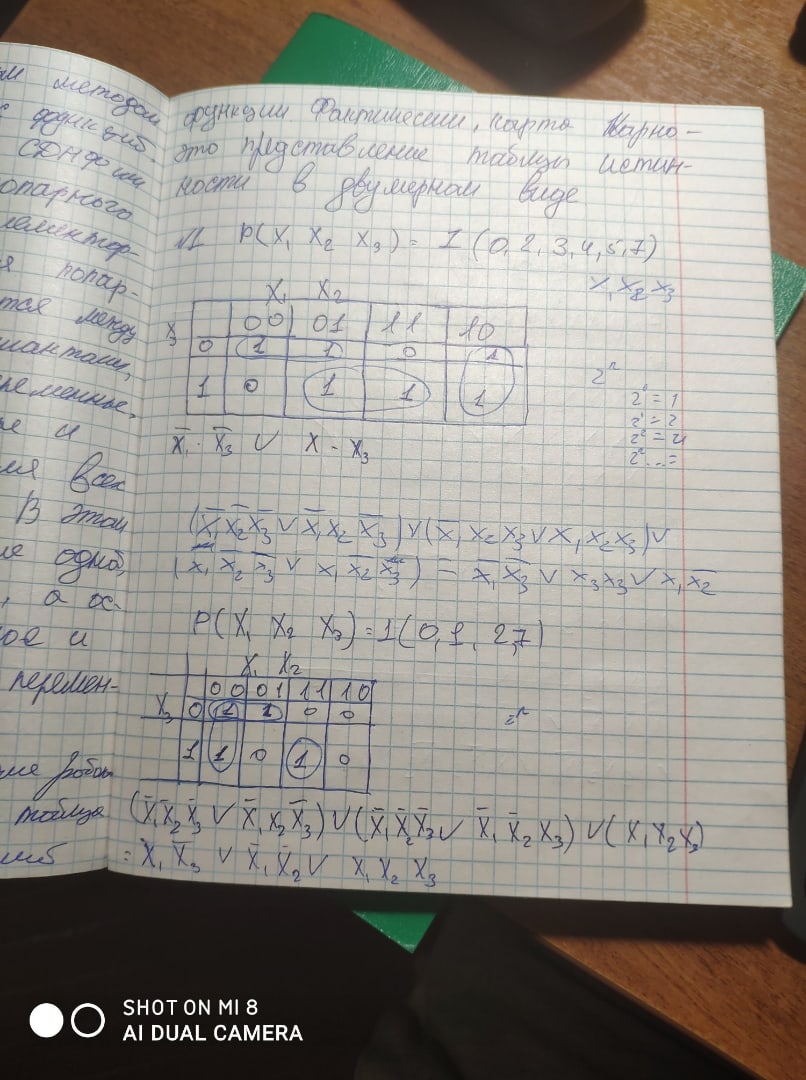 ом методом
функций.
СДНФ или
опарного
лементор-
я попар-
тся между
ременные,
ре и
ия всех
В этом
ие одно,
, а ос-
ное и
перемен-
таблица
функции Фактически, карта Карно-
это представление таблицы истин-
ности в двумерном виде
P(X₁ X₂ X₃) = 1 (0,2,3,4,5,7)
X₁ X₂ X₃
X₁ X₂
00 01 11 10
X₃
0 1 1 0 1
1 0 1 1 1
2ⁿ
2⁰ = 1
2¹ = 2
2² = 4
2ⁿ ... =
X̄₁ · X̄₃ ∨ X - X₃
(X̄₁ X̄₂ X̄₃ ∨ X̄₁ X₂ X̄₃) ∨ (X̄₁ X₂ X₃ ∨ X₁ X₂ X₃) ∨
(X̄₁ X̄₂ X̄₃ ∨ X₁ X̄₂ X̄₃) = X̄₁ X̄₃ ∨ X₃ X₃ ∨ X₁ X̄₂
P(X₁ X₂ X₃) = 1 (0,1, 2,7)
X₁ X₂
00 01 11 10
X₃ 0 1 1 0 0
1 1 0 1 0
2ⁿ
(X̄₁ X̄₂ X̄₃ ∨ X̄₁ X₂ X̄₃) ∨ (X̄₁ X̄₂ X̄₃ ∨ X̄₁ X̄₂ X₃) ∨ (X₁ X₂ X₃)
= X̄₁ X̄₃ ∨ X̄₁ X̄₂ ∨ X₁ X₂ X₃
SHOT ON MI 8
AI DUAL CAMERA